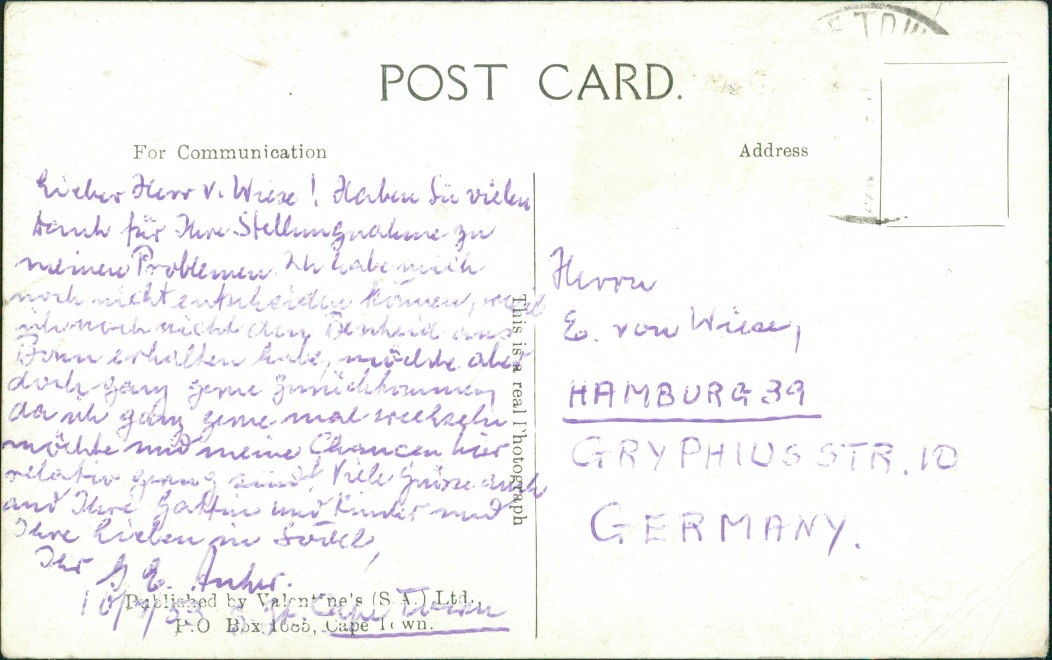 POST CARD.
For Communication
Address
Lieber Herr v. Wiese! Haben Sie vielen
Dank für Ihre Stellungnahme zu
meinen Problemen. Ich habe mich
noch nicht entscheiden können, weil
ich noch nicht den Bescheid aus
Bonn erhalten habe, möchte aber
doch ganz gerne zurückkommen,
da ich ganz gerne mal wechseln
möchte und meine Chancen hier
relativ gering sind. Viele Grüsse auch
and Ihre Gattin und Kinder und
Ihre Lieben in
Ihr G E.
Cape Town
Published by Valentine's (S.A.) Ltd.,
P.O Box 1685, Cape Town.
This is a real Photograph
Herrn
E. von Wiese,
HAMBURG 39
GRYPHIUSSTR. 10
GERMANY.